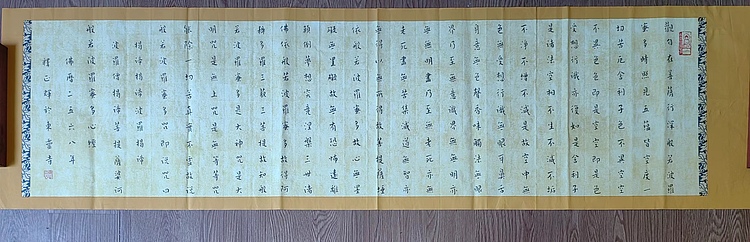 觀自在菩薩行深般若波羅
蜜多時照見五蘊皆空度一
切苦厄舍利子色不異空空
不異色色即是空空即是色
受想行識亦復如是舍利子
是諸法空相不生不滅不垢
不淨不增不減是故空中無
色無受想行識無眼耳鼻舌
身意無色聲香味觸法無眼
界乃至無意識界無無明亦
無無明盡乃至無老死亦無
老死盡無苦集滅道無智亦
無得以無所得故菩提薩埵
依般若波羅蜜多故心無罣
礙無罣礙故無有恐怖遠離
顛倒夢想究竟涅槃三世諸
佛依般若波羅蜜多故得阿
耨多羅三藐三菩提故知般
若波羅蜜多是大神咒是大
明咒是無上咒是無等等咒
能除一切苦真實不虛故說
般若波羅蜜多咒即說咒曰
揭諦揭諦波羅揭諦
波羅僧揭諦菩提薩婆訶
般若波羅蜜多心經
佛曆二五六八年
釋正輝於東靈寺